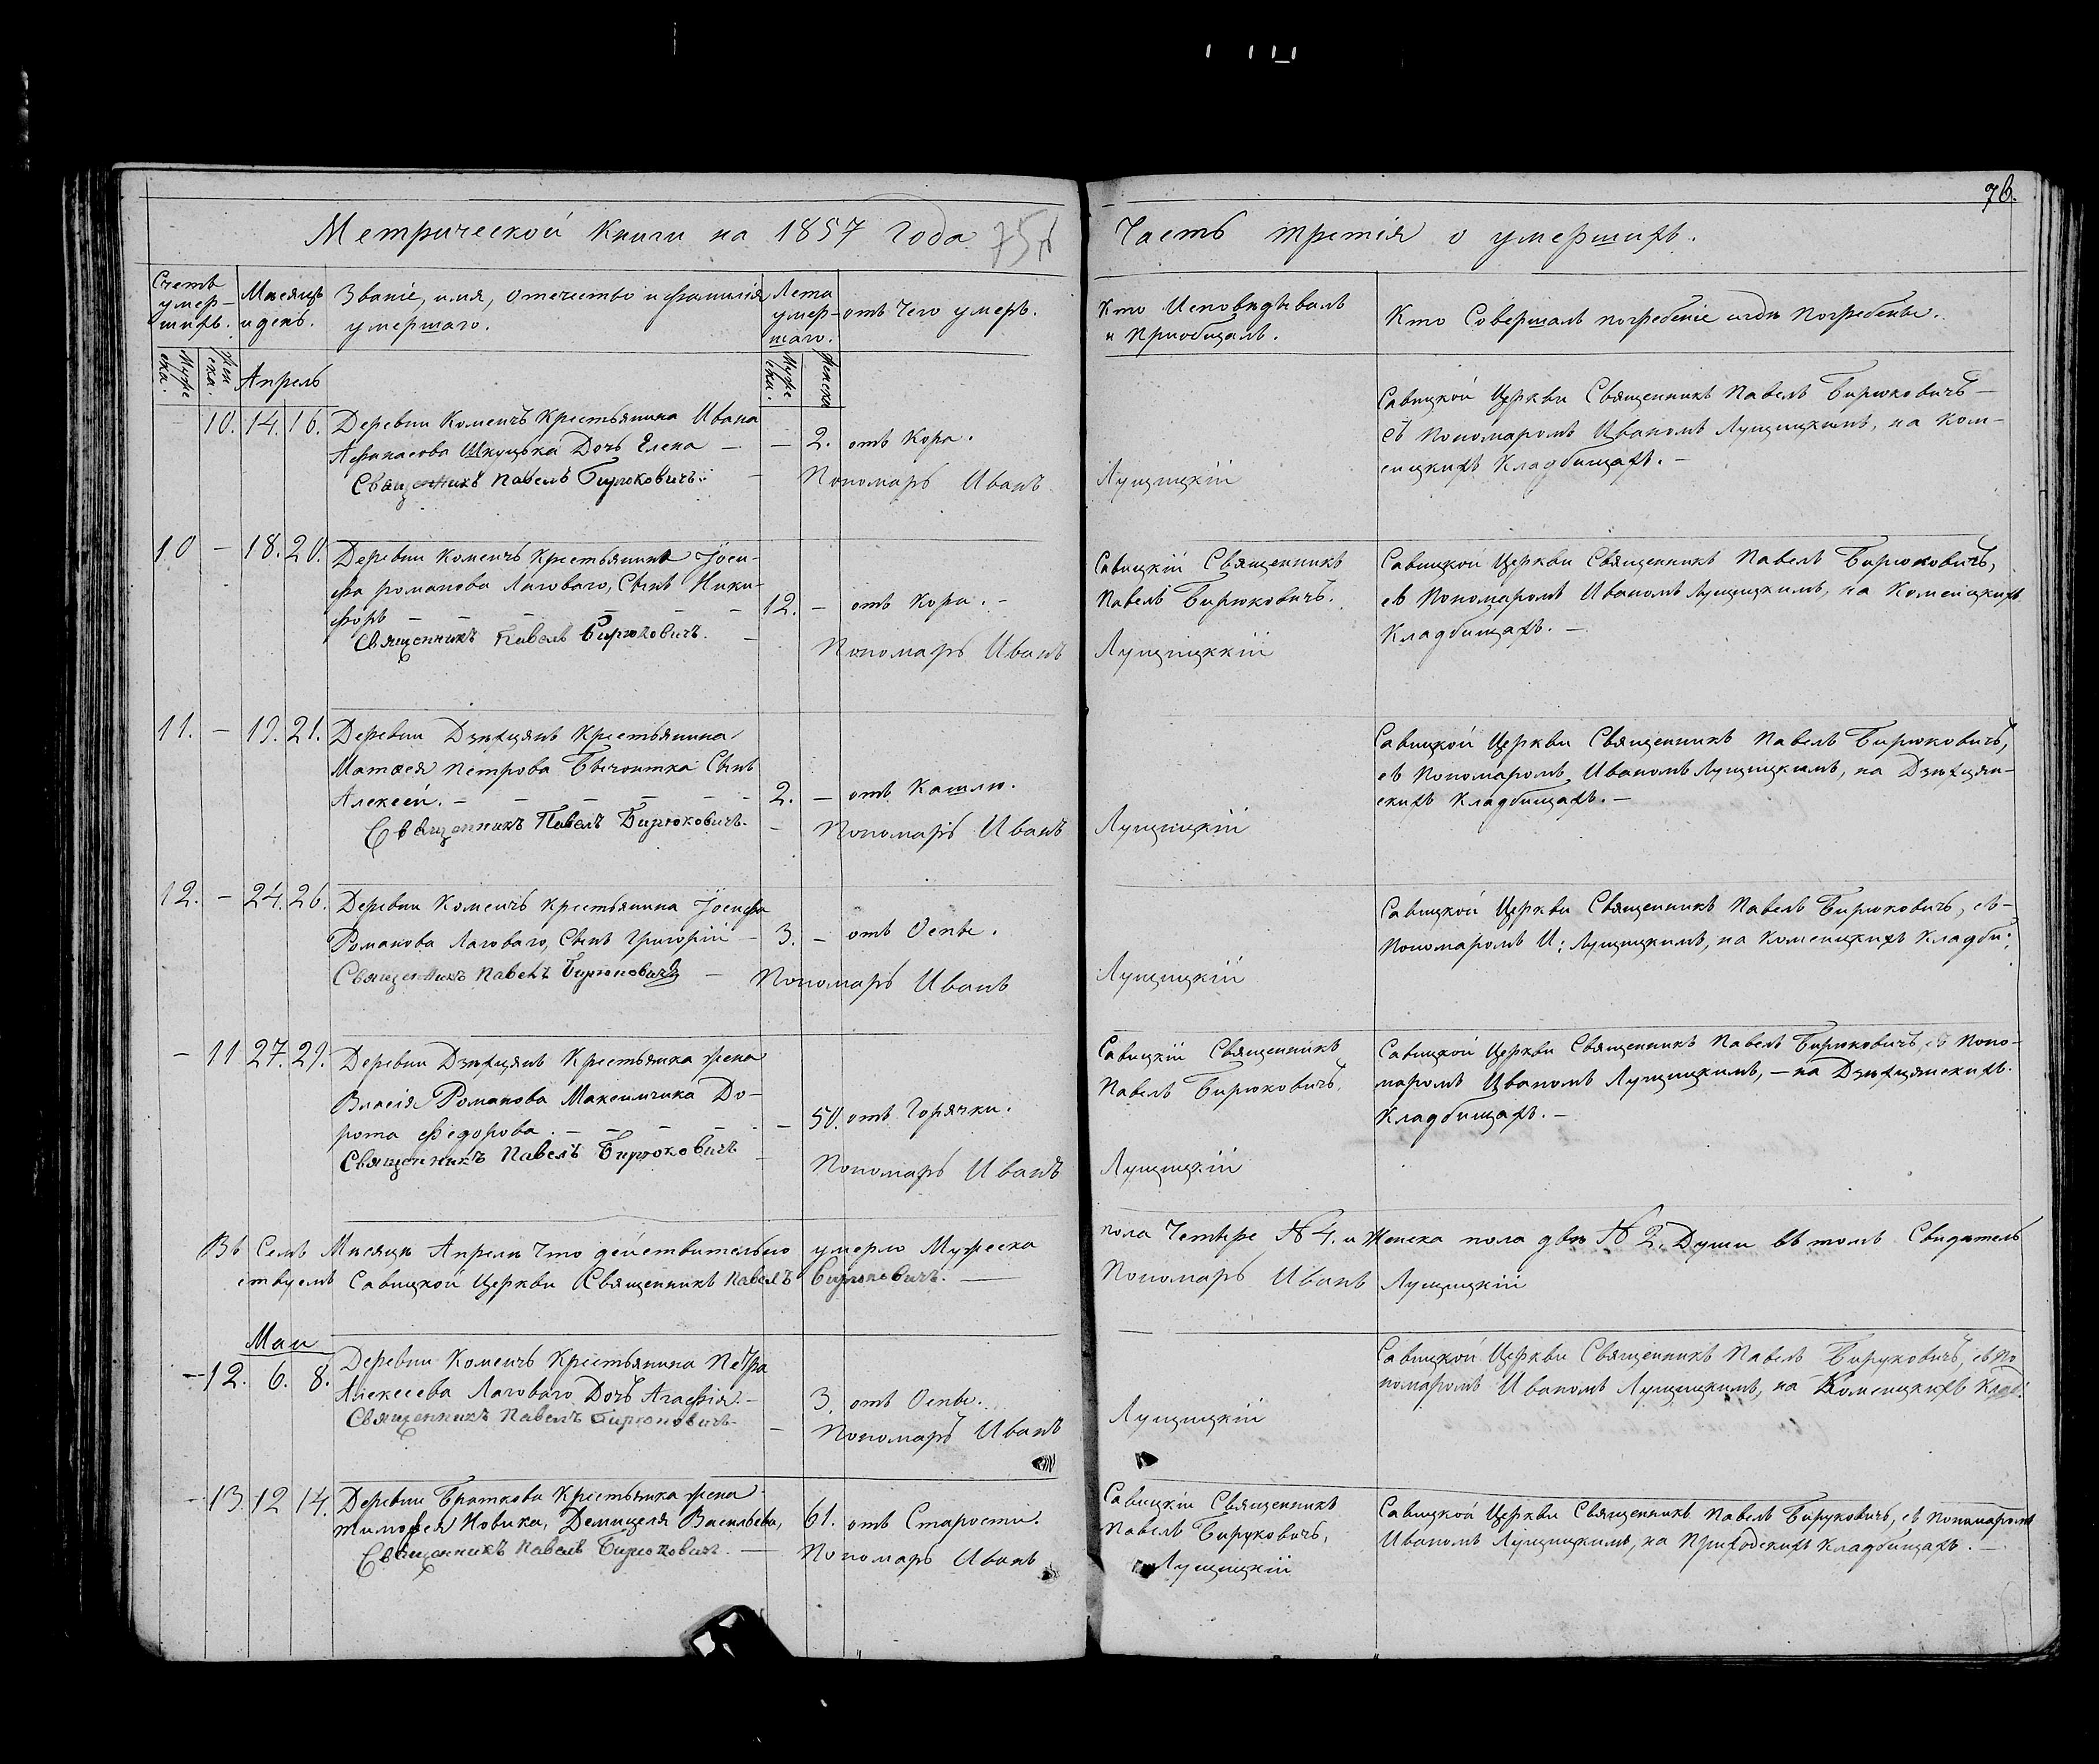 76.
Метрической Книги на 1857 Года
75
Часть третія о умершихъ.
Счетъ умер-шихъ.
Мужеска.
Женска.
Мѣсяцъ и день.
Званіе, имя, отечество и фамилія умершаго.
Лета умер-шаго.
Мужеска.
Женска
отъ Чего умеръ.
Кто Исповѣдывалъ
и Приобщалъ.
Кто Совершалъ погребеніе и гдѣ Погребены.
Апрель
10. 14. 16. Деревни Коменчъ Крестьянина Ивана
Афанасова Шкуцька Дочь Елена —
— 2. отъ Кора.
Священникъ Павелъ Бирюковичъ
Пономарь Иванъ Лущицкій
Савицкой Церкви Священникъ Павелъ Бирюковичъ —
съ Пономаромъ Иваномъ Лущицкимъ, на Ком-
ецкихъ Кладбищахъ. —
10 — 18. 20. Деревни Коменчъ Крестьянина Іоси-
фа романова Лаговаго, Сынъ Ники-
форъ — — — — —
12. — отъ Кора. —
Священникъ Павелъ Бирюковичъ. —
Пономарь Иванъ Лущицккій
Савицкій Священникъ
Павелъ Бирюковичъ.
Савицкой Церкви Священникъ Павелъ Бирюковичъ,
съ Пономаромъ Иваномъ Лущицкимъ, на Коменцкихъ
Кладбищахъ. —
11. — 19. 21. Деревни Дзѣхцянъ Крестьянина
Матѳея петрова Сынъ
Алексей. — — — — —
2. — отъ Кашлю.
Священникъ Павелъ Бирюковичъ. —
Пономарь Иванъ Лущицкій
Савицкой Церкви Священникъ Павелъ Бирюковичъ,
съ Пономаромъ Иваномъ Лущицкимъ, на Дзѣхцян-
скихъ Кладбищахъ. —
12. — 24. 26. Деревни Коменчъ Крестьянина Іосифа
Романова Лаговаго, Сынъ Григорій —
3. — отъ Оспы.
Священникъ Павелъ Бирюковичъ —
Пономарь Иванъ Лущицкій
Савицкой Церкви Священникъ Павелъ Бирюковичъ, съ —
Пономаромъ И: Лущицкимъ, на Коменцкихъ Кладби:
— 11 27. 29. Деревни Дзѣхцянъ Крестьянка жена
Власія Романова Максимчика До-
рота Федорова. — — — —
— 50. отъ Горячки.
Священникъ Павелъ Бирюковичъ —
Пономарь Иванъ Лущицкій
Савицкій Священникъ
Павелъ Бирюковичъ.
Савицкой Церкви Священникъ Павелъ Бирюковичъ, съ Поно-
маромъ Иваномъ Лущицкимъ, — на Дзѣхцянскихъ
Кладбищахъ. —
Въ Семъ Мѣсяцѣ Апрелѣ Что действительно умерло Мужеска пола Четыре № 4. и Женска пола двѣ № 2. Души въ томъ Свидѣтель
ствуемъ Савицкой Церкви Священникъ Павелъ Бирюковичъ. — Пономарь Иванъ Лущицкій
Маи
— 12. 6. 8. Деревни Коменчъ Крестьянина Петра
Алексеева Лаговаго Дочь Агафія. —
3. отъ Оспы.
Священникъ Павелъ Бирюковичъ. —
Пономарь Иванъ Лущицкій
Савицкой Церкви Священникъ Павелъ Бируковичъ, съ По
номаромъ Иваномъ Лущицкимъ, на Коменцкихъ Клад:
— 13 12 14. Деревни Браткова Крестьянка жена
тимофея Новика, Демицеля Васильева,
61. отъ Старости.
Священникъ Павелъ Бирюковичъ. —
Пономарь Иванъ Лущицкій
Савицкій Священникъ
Павелъ Бируковичъ,
Савицкой Церкви Священникъ Павелъ Бируковичъ, съ пономаромъ
Иваномъ Лущицкимъ, на Приходскихъ Кладбищахъ. —